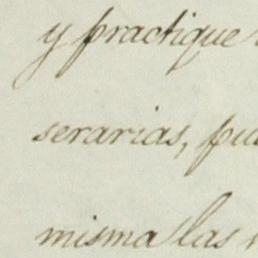 y practique
serarias, pu
misma las